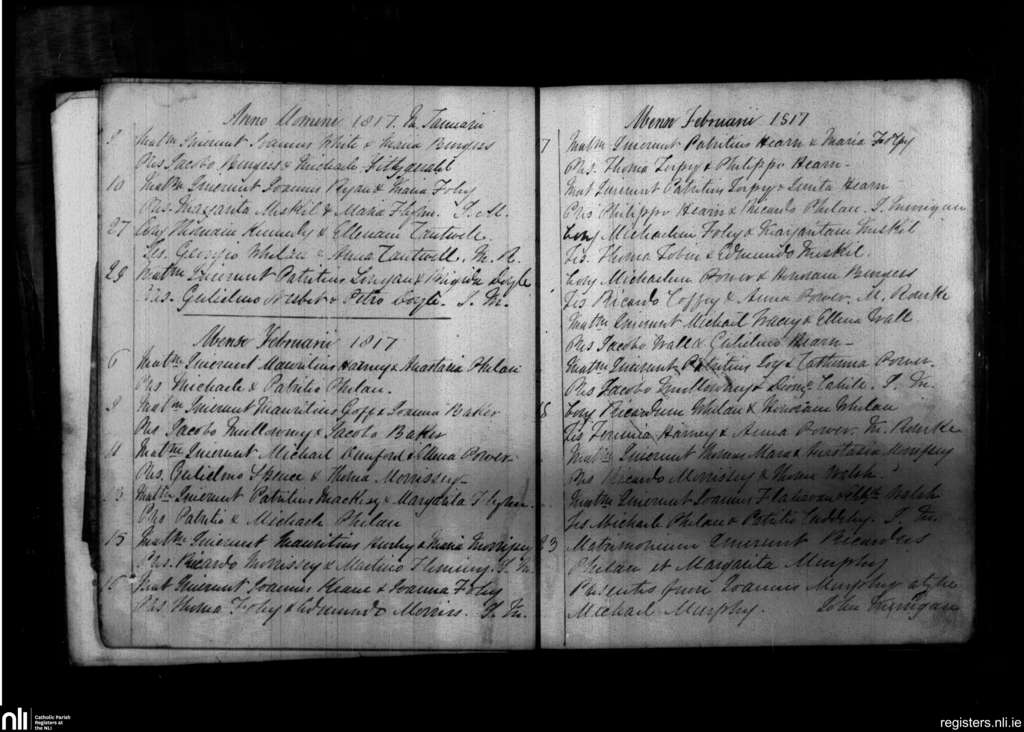 Anno Domini 1817. Januarii
Matm Inierunt Joannes White & Maria Burgess
Pbs Jacobo Burgess & Michaele Fitzgerald
10 Matm Inierunt Joannes Ryan & Maria Foley
Pbs. Margarita Miskil & Maria Flynn. T. M.
27 Conj Thomam Kennely & Ellenam Cantwell.
Tes. Georgio Whelan & Anna Cantwell. M. R.
29 Matm Inierunt Patritius & Brigida Coyle
Pbs. Gulielmo & Petro Coyle T. M.
Mense Februarii 1817
6 Matm Inierunt Mauritius Harney & Anastasia Phelan
Pbs Michaele & Patritio Phelan.
9 Matm Inierunt Mauritius Goff & Joanna Baker
Pbs Jacobo Mullowney & Jacobo Baker
11 Matm Inierunt Michael & Ellena Power
Pbs. Gulielmo Spence & Thoma Morrissey
13 Matm Inierunt Patritius Mackey & Margarita Flynn.
Pbs Patritio & Michaele Phelan
15 Matm Inierunt Mauritius Hurley & Maria Morrissey
Pbs. Ricardo Morrissey & Martino Fleming. T. M.
Mat Inierunt Joannes Keane & Joanna Foley
Pbs Thoma Foley & Edmundo Morris. T. M.
Mense Februarii 1817
7 Matm Inierunt Patritius Hearn & Maria Torpy
Pbs. Thoma Torpy & Philippo Hearn
Mat Inierunt Patritius Torpy & Hearn
Pbs Philippo Hearn & Ricardo Phelan. J. Finnigan
Conj Michaelem Foley & Margaritam Miskil
Tes. Thoma Tobin & Edmundo Miskil.
Conj Michaelem Power & Honoram Burgess
Tes Ricardo Coffey & Anna Power. M. Rourke
Matm Inierunt Michael Tracey & Ellena Wall
Pbs Jacobo Wall & Gulielmo Hearn
Matm Inierunt Patritius & Catherina Power
Pbs Jacobo Mullowney & Cahill. T. M.
18 Conj Ricardum Whelan & Honoram Whelan
Tes Jeremia Harney & Anna Power. M. Rourke
Matm Inierunt Thomas & Anastasia Dempsey
Pbs Ricardo Morrissey & Thoma Walsh
Matm Inierunt Joannes Flahavan & Walsh
Tes Michaele Phelan & Patritio T. M.
23 Matrimonium Inierunt Ricardus
Phelan et Margarita Murphy
Presentis fuere Joannes Murphy atque
Michael Murphy. John Finnigan
nli
Catholic Parish
Registers at
the NLI
registers.nli.ie